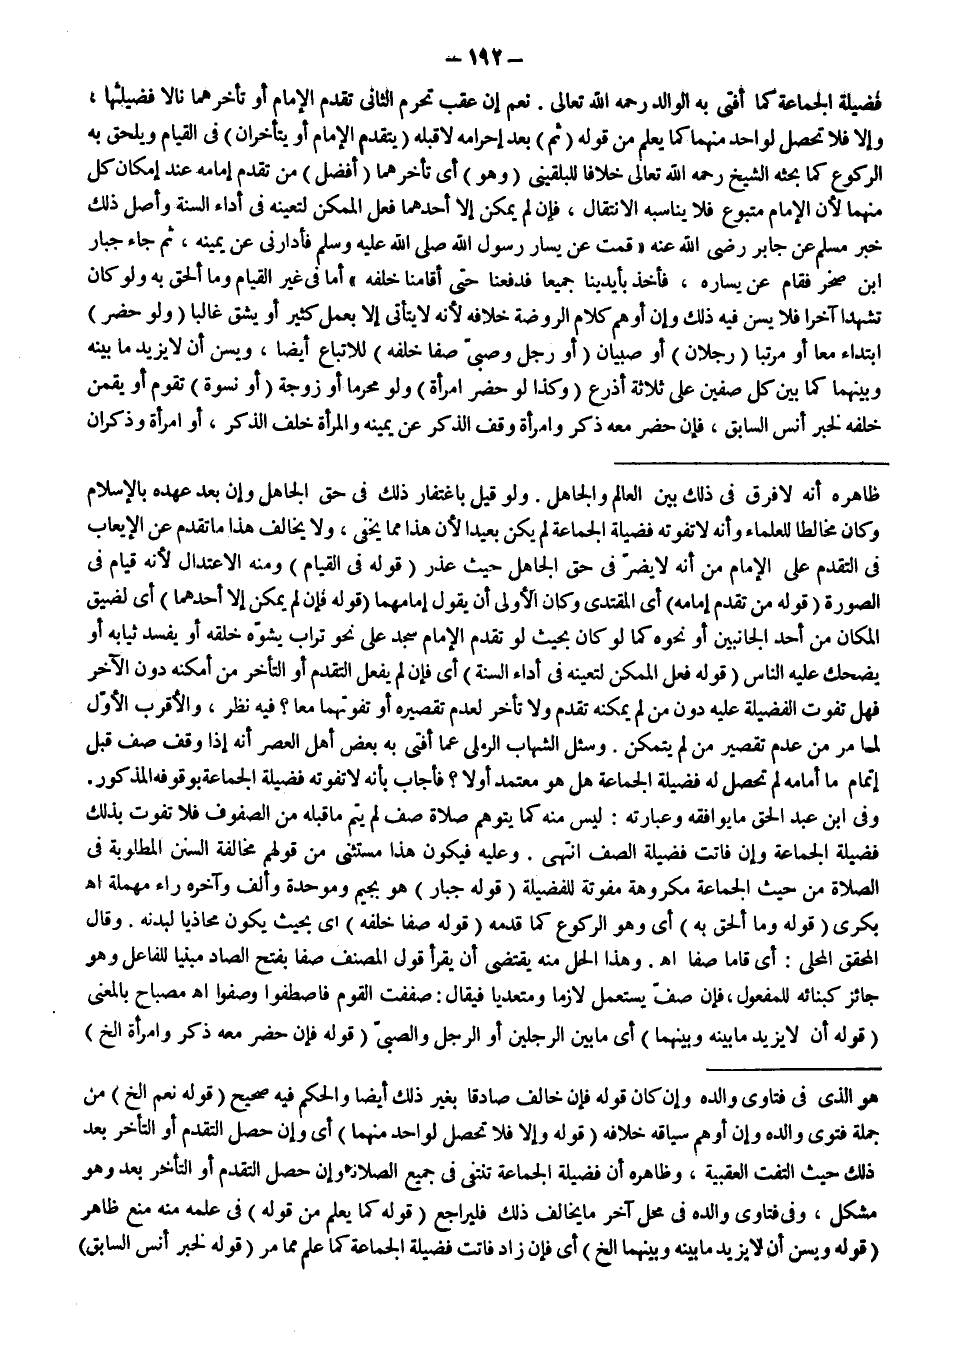 – ١٩٢ –
فضيلة الجماعة كما أفتى به الوالد رحمه الله تعالى . نعم إن عقب تحرم الثانى تقدم الإمام أو تأخرهما نالا فضيلتها ،
وإلا فلا تحصل لواحد منهما كما يعلم من قوله ( ثم ) بعد إحرامه لاقبله ( يتقدم الإمام أو يتأخران ) فى القيام ويلحق به
الركوع كما بحثه الشيخ رحمه الله تعالى خلافا للبلقينى ( وهو ) أى تأخرهما ( أفضل ) من تقدم إمامه عند إمكان كل
منهما لأن الإمام متبوع فلا يناسبه الانتقال ، فإن لم يمكن إلا أحدهما فعل الممكن لتعينه فى أداء السنة وأصل ذلك
خبر مسلم عن جابر رضى الله عنه « قمت عن يسار رسول الله صلى الله عليه وسلم فأدارنى عن يمينه ، ثم جاء جبار
ابن صخر فقام عن يساره ، فأخذ بأيدينا جميعا فدفعنا حتى أقامنا خلفه » أما فى غير القيام وما ألحق به ولو كان
تشهدا آخرا فلا يسن فيه ذلك وإن أوهم كلام الروضة خلافه لأنه لايتأتى إلا بعمل كثير أو يشق غالبا ( ولو حضر )
ابتداء معا أو مرتبا ( رجلان ) أو صبيان ( أو رجل وصبىّ صفا خلفه ) للاتباع أيضا ، ويسن أن لايزيد ما بينه
وبينهما كما بين كل صفين على ثلاثة أذرع ( وكذا لو حضر امرأة ) ولو محرما أو زوجة ( أو نسوة ) تقوم أو يقمن
خلفه لخبر أنس السابق ، فإن حضر معه ذكر وامرأة وقف الذكر عن يمينه والمرأة خلف الذكر ، أو امرأة وذكران
ظاهره أنه لافرق فى ذلك بين العالم والجاهل . ولو قيل باغتفار ذلك فى حق الجاهل وإن بعد عهده بالإسلام
وكان مخالطا للعلماء وأنه لاتفوته فضيلة الجماعة لم يكن بعيدا لأن هذا مما يخفى ، ولا يخالف هذا ماتقدم عن الإيعاب
فى التقدم على الإمام من أنه لايضرّ فى حق الجاهل حيث عذر ( قوله فى القيام ) ومنه الاعتدال لأنه قيام فى
الصورة ( قوله من تقدم إمامه) أى المقتدى وكان الأولى أن يقول إمامهما (قوله فإن لم يمكن إلا أحدهما ) أى لضيق
المكان من أحد الجانبين أو نحوه كما لو كان بحيث لو تقدم الإمام سجد على نحو تراب يشوّه خلقه أو يفسد ثيابه أو
يضحك عليه الناس ( قوله فعل الممكن لتعينه فى أداء السنة ) أى فإن لم يفعل التقدم أو التأخر من أمكنه دون الآخر
فهل تفوت الفضيلة عليه دون من لم يمكنه تقدم ولا تأخر لعدم تقصيره أو تفوتهما معا ؟ فيه نظر ، والأقرب الأوّل
لما مر من عدم تقصير من لم يتمكن . وسئل الشهاب الرملى عما أفتى به بعض أهل العصر أنه إذا وقف صف قبل
إتمام ما أمامه لم تحصل له فضيلة الجماعة هل هو معتمد أولا ؟ فأجاب بأنه لاتفوته فضيلة الجماعة بوقوفه المذكور .
وفى ابن عبد الحق مايوافقه وعبارته : ليس منه كما يتوهم صلاة صف لم يتم ماقبله من الصفوف فلا تفوت بذلك
فضيلة الجماعة وإن فاتت فضيلة الصف انتهى . وعليه فيكون هذا مستثنى من قولهم مخالفة السنن المطلوبة فى
الصلاة من حيث الجماعة مكروهة مفوتة للفضيلة ( قوله جبار ) هو بجيم وموحدة وألف وآخره راء مهملة اهـ
بكرى ( قوله وما ألحق به ) أى وهو الركوع كما قدمه ( قوله صفا خلفه ) اى بحيث يكون محاذيا لبدنه . وقال
المحقق المحلى : أى قاما صفا اهـ . وهذا الحل منه يقتضى أن يقرأ قول المصنف صفا بفتح الصاد مبنيا للفاعل وهو
جائز كبنائه للمفعول ، فإن صفّ يستعمل لازما ومتعديا فيقال : صففت القوم فاصطفوا وصفوا اهـ مصباح بالمعنى
( قوله أن لايزيد مابينه وبينهما ) أى مابين الرجلين أو الرجل والصبىّ ( قوله فإن حضر معه ذكر وامرأة الخ )
هو الذى فى فتاوى والده وإن كان قوله فإن خالف صادقا بغير ذلك أيضا والحكم فيه صحيح ( قوله نعم الخ ) من
جملة فتوى والده وإن أوهم سياقه خلافه ( قوله وإلا فلا تحصل لواحد منهما ) أى وإن حصل التقدم أو التأخر بعد
ذلك حيث انتفت العقبية ، وظاهره أن فضيلة الجماعة تنتفى فى جميع الصلاة وإن حصل التقدم أو التأخر بعد وهو
مشكل ، وفى فتاوى والده فى محل آخر مايخالف ذلك فليراجع ( قوله كما يعلم من قوله ) فى علمه منه منع ظاهر
( قوله ويسن أن لايزيد مابينه وبينهما الخ ) أى فإن زاد فاتت فضيلة الجماعة كما علم مما مر ( قوله لخبر أنس السابق)